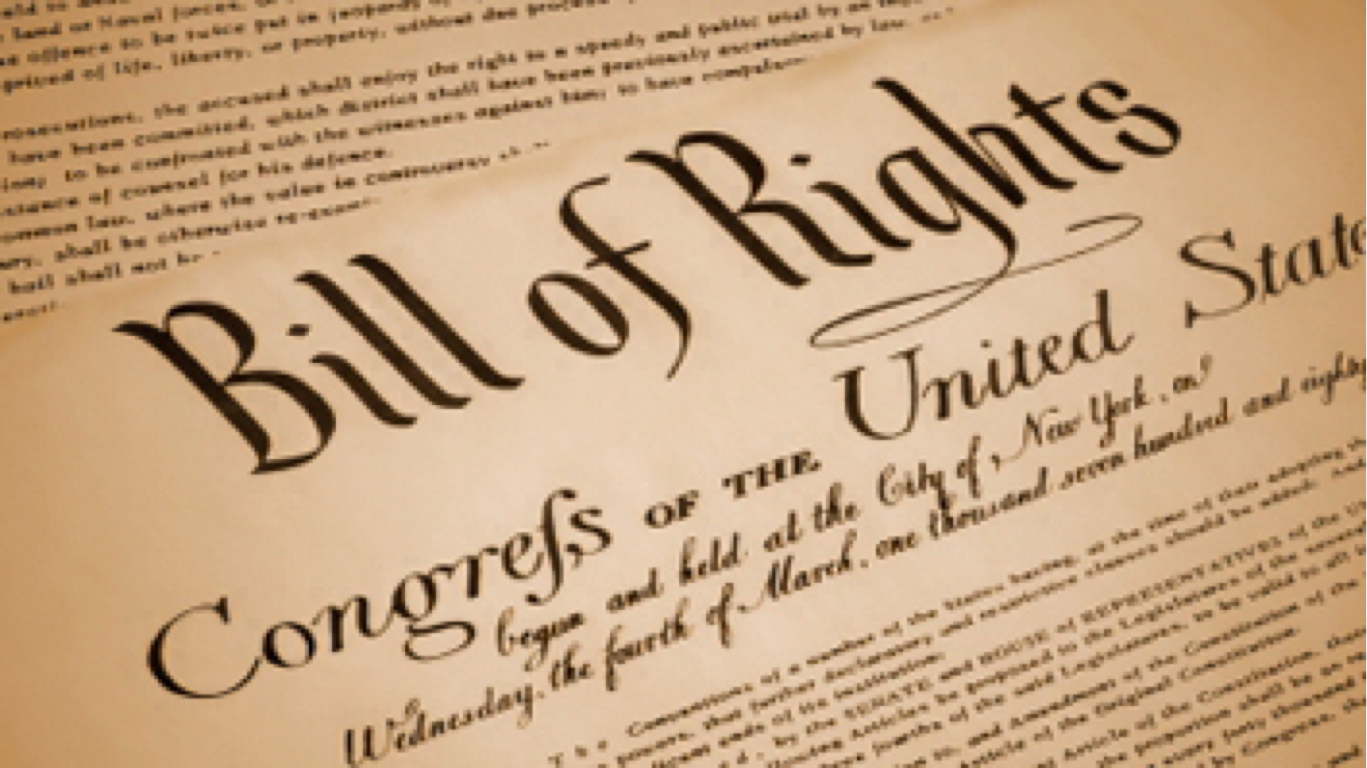 land or Naval forces, or
offence to be twice put in jeopardy of
of life, liberty, or property, without due process
the accused shall enjoy the right to a speedy and public trial by an
have been committed, which district shall have been previously ascertained by law,
to be confronted with the witnesses against him; to have
of counsel for his defence.
law, where the value in controversy
shall be otherwise
shall not be
Bill of Rights
Congreſs OF THE United State
begun and held at the City of New York, on
Wednesday, the fourth of March, one thousand seven hundred and eighty
The Conventions of a number of the States having, at the time of their adopting the
powers, that further declaratory and restrictive clauses should be added: And
ends of its institution:
by the SENATE and HOUSE of REPRESENTATIVES of the
Articles be proposed to the Legislatures of the several
fourths of the said Legislatures, to be valid to all
to, and Amendment of the Constitution of the
Article of the Original Constitution.
Article of the Constitution, there
the proportion shall be
every forty thousand
by Congress,